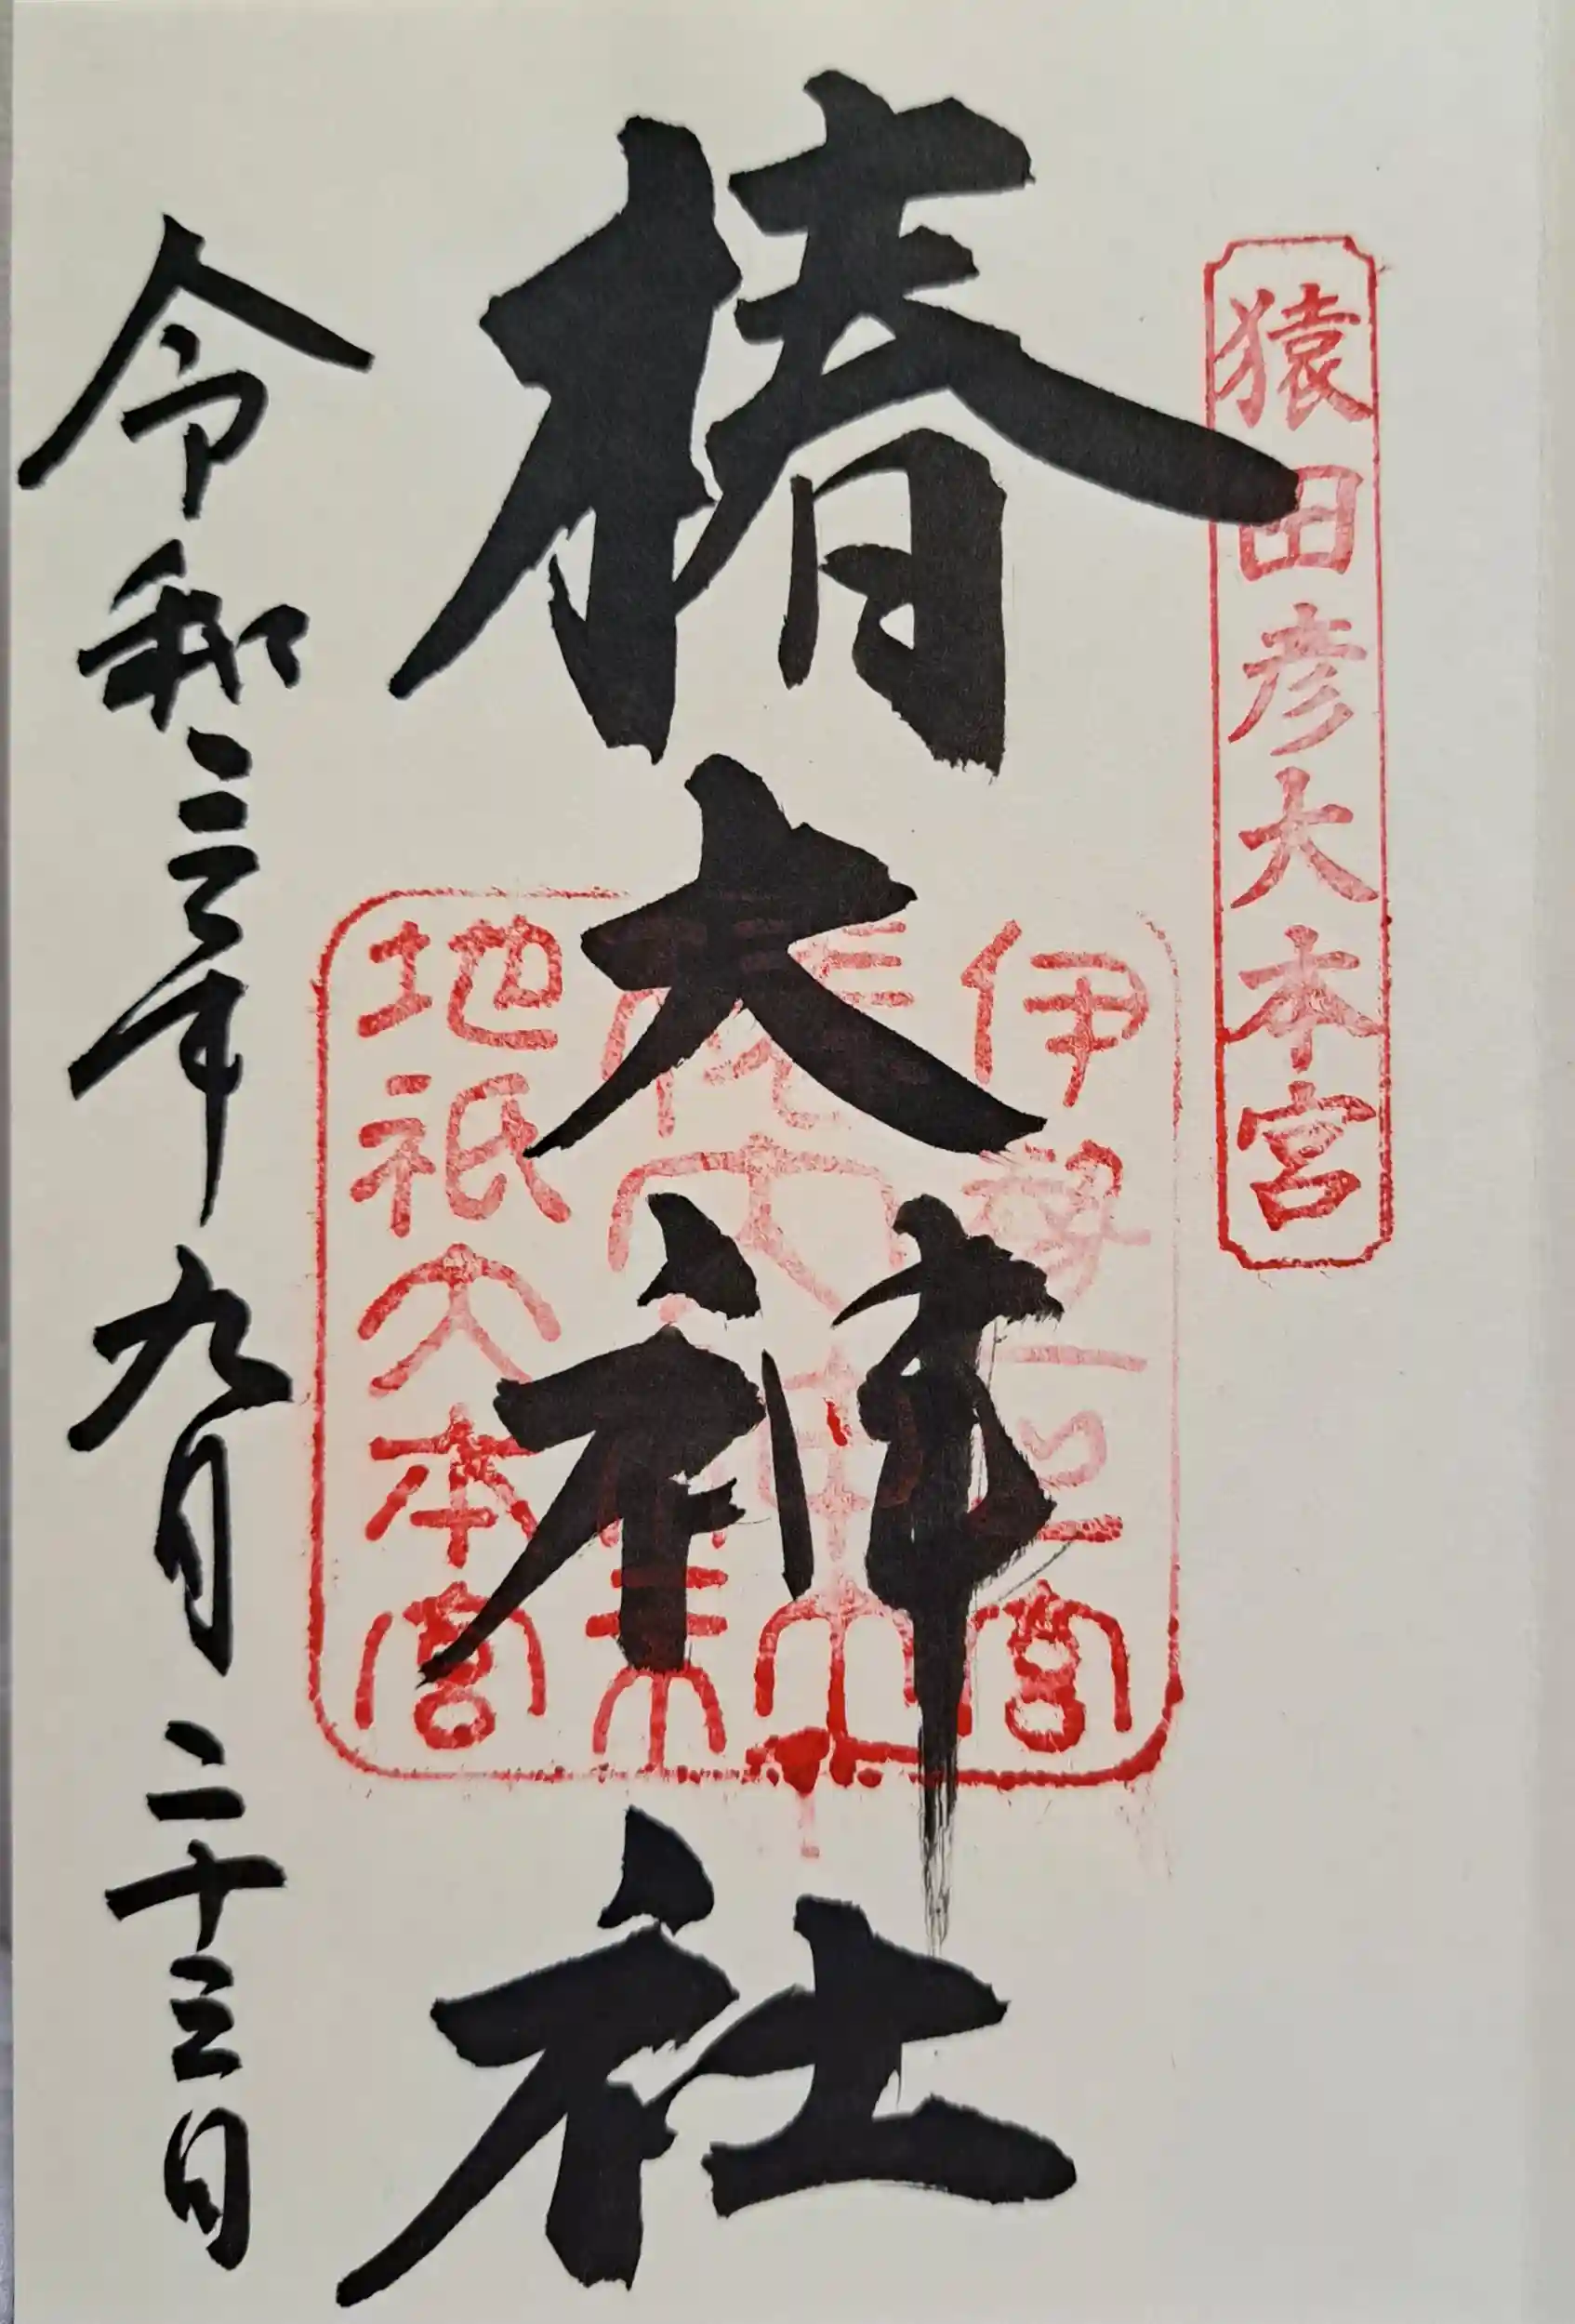 猿田彦大本宮
椿大神社
伊勢一之宮
椿大神社
地祇大本宮
令和三年九月二十三日